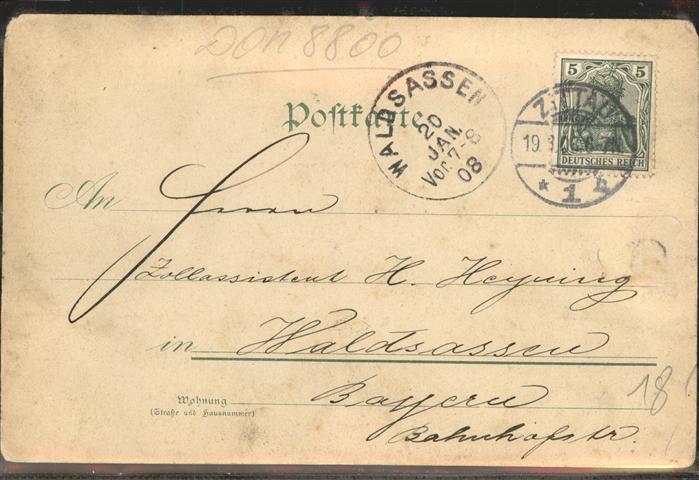 DON 8800
Postkarte
WALDSASSEN
20
JAN.
Vor. 7-8
08
ZITTAU
19. 1. 08. 6-7 N.
* 1 b
5 5
DEUTSCHES REICH
An Herrn
Zollassistent H. Heyning
in Waldsassen
Wohnung
(Straße und Hausnummer)
Bayern
Bahnhofstr.
18